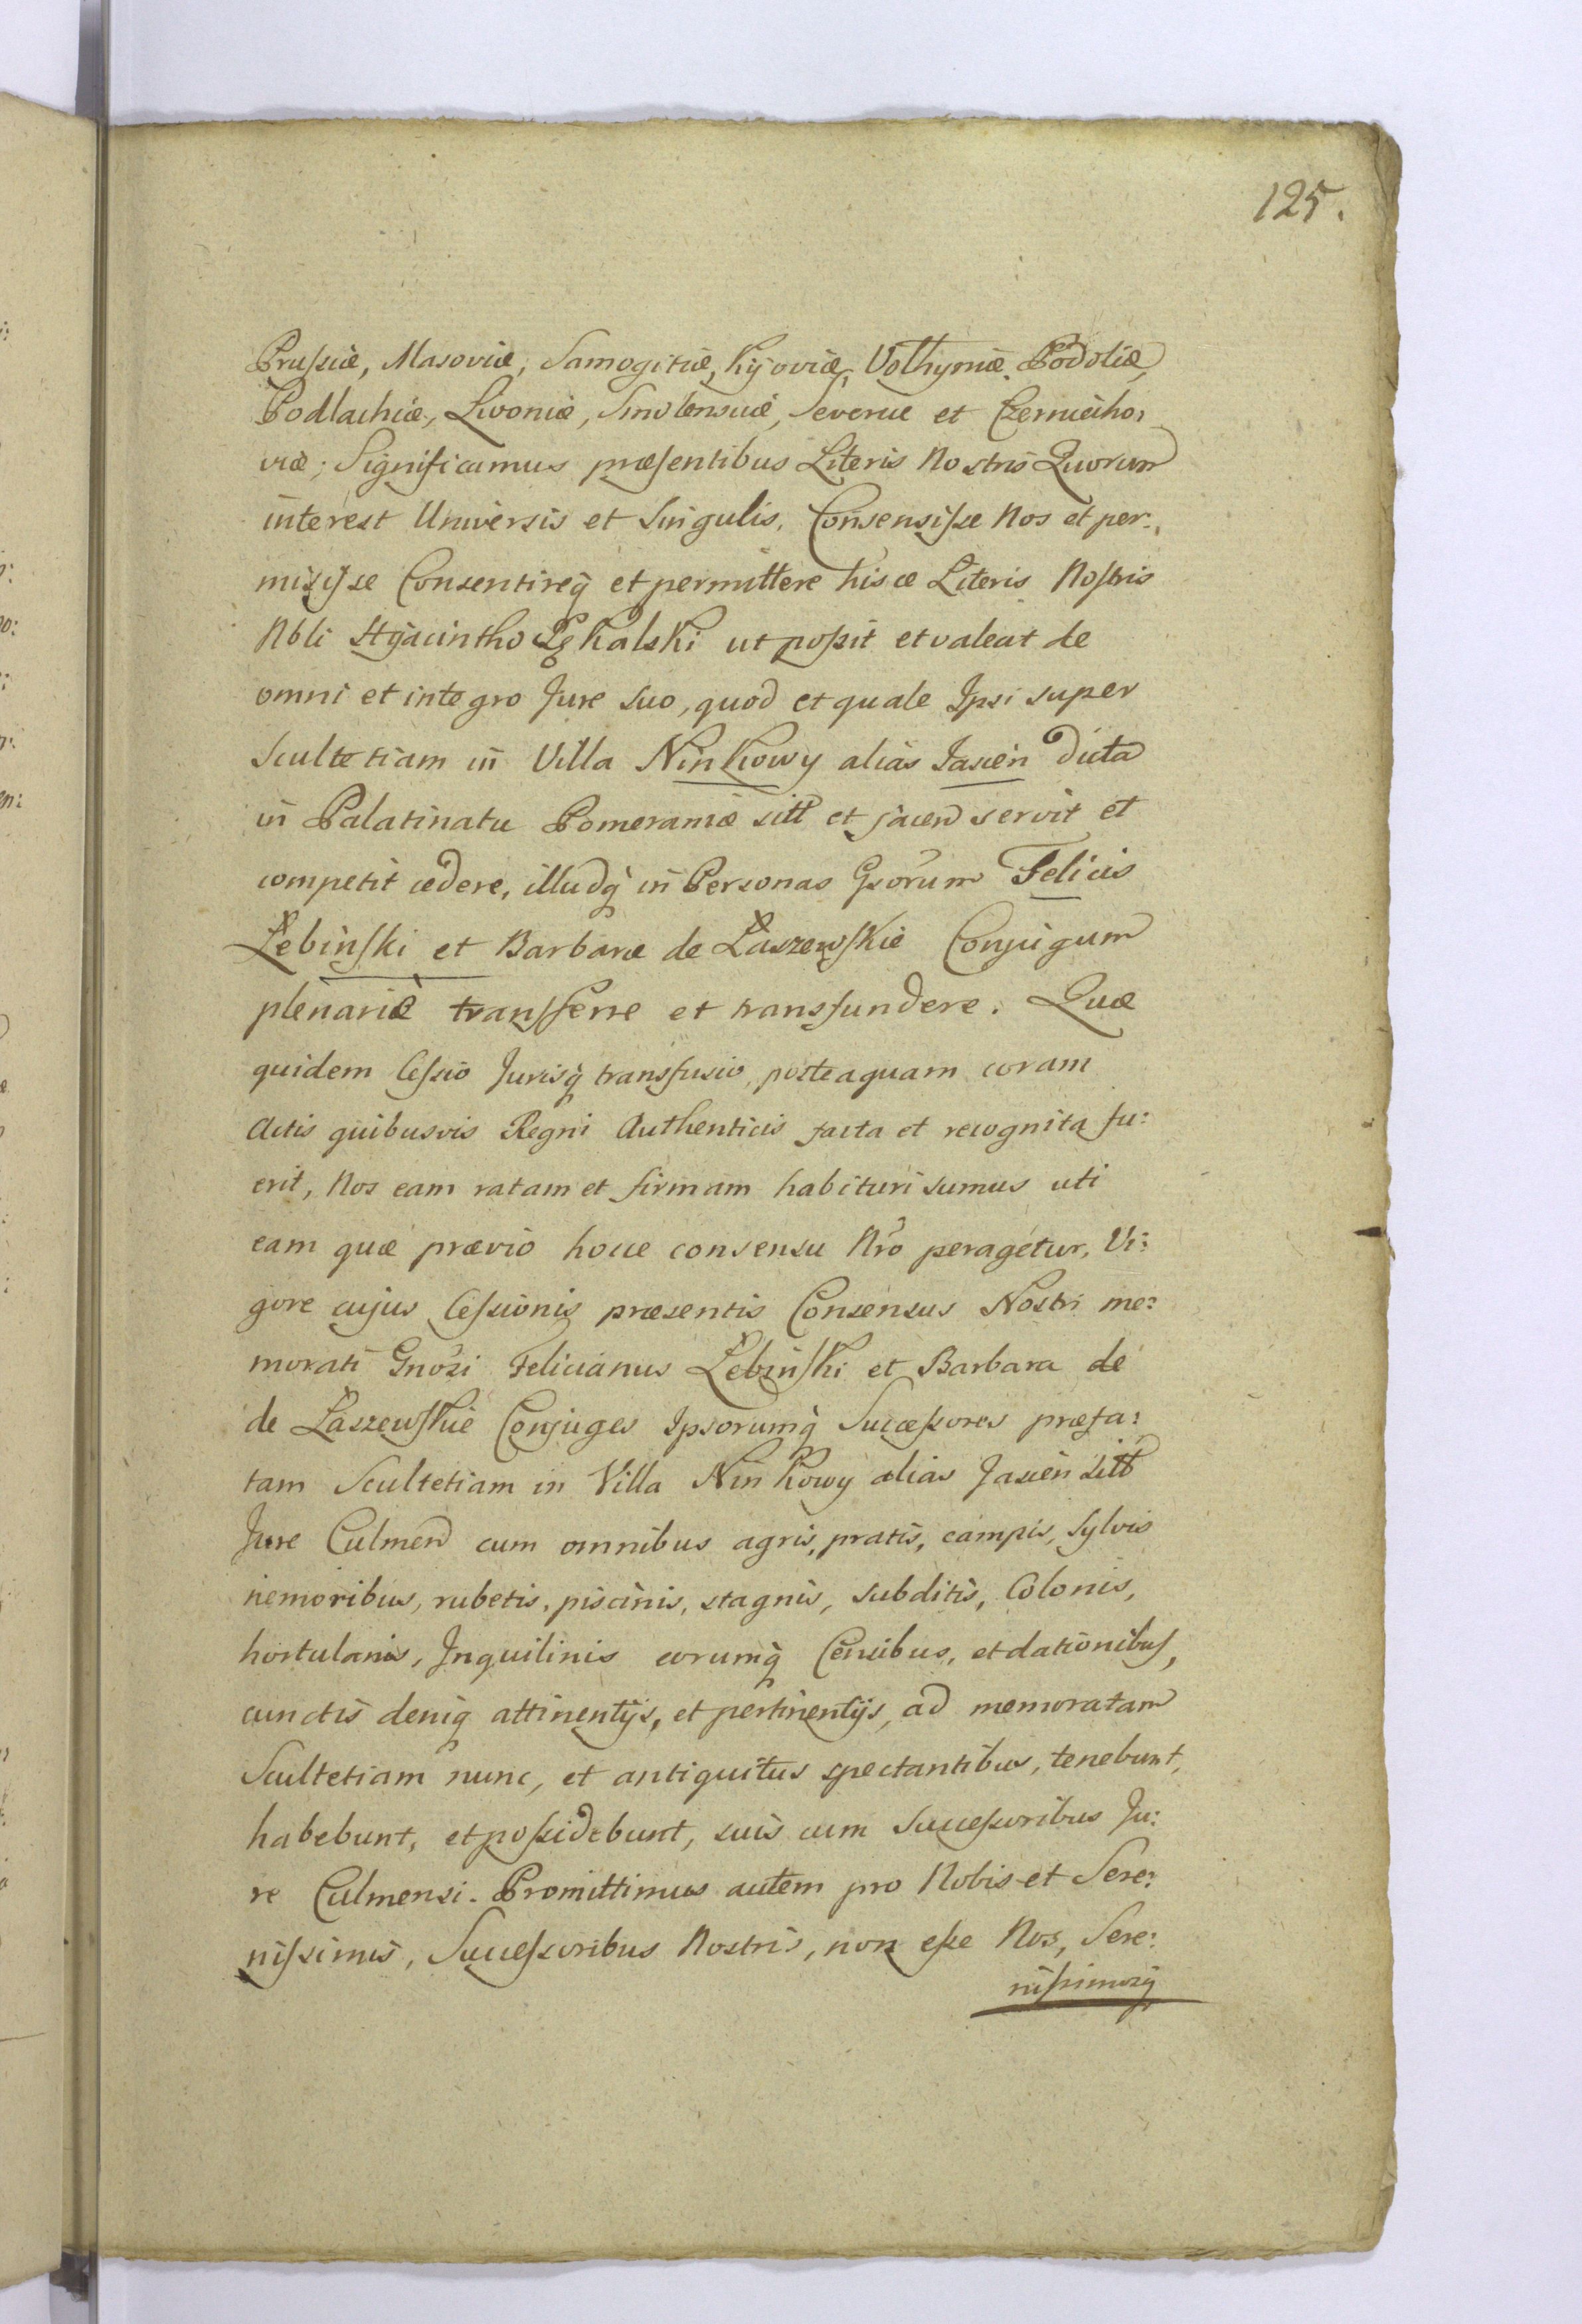 125.
Prussiæ, Masoviæ, Samogitiæ, Kijoviæ, Volhyniæ, Podoliæ,
Podlachiæ, Livoniæ, Smolensciæ, Severiæ et Czerniecho:
viæ; Significamus præsentibus Literis Nostris Quorum
interest Universis et Singulis, Consensisse Nos et per:
misisse Consentireq et permittere hisce Literis Nostris
Nbli Hyacintho Pękalski ut possit et valeat de
omni et integro Jure suo, quod et quale Ipsi super
Scultetiam in Villa Ninkowy alias Jasień dicta
in Palatinatu Pomeraniæ sitt et jacen servit et
competit cedere, illudq in Personas Gsorum Felicis
Łebinski et Barbaræ de Łaszewskie Conjugum
plenariè transferre et transfundere. Quæ
quidem Cessio Jurisq transfusio, posteaquam coram
Actis quibusvis Regni Authenticis facta et recognita fu:
erit, Nos eam ratam et firmam habituri sumus uti
eam quæ prævio hocce consensu Nro peragetur, Vi:
gore cujus Cessionis præsentis Consensus Nostri me:
morati Gnosi Felicianus Łebinski et Barbara de
de Łaszewskie Conjuges Ipsorumq Successores præfa:
tam Scultetiam in Villa Ninkowy alias Jasień sitt
Jure Culmen cum omnibus agris, pratis, campis, sylvis
nemoribus, rubetis, piscinis, stagnis, subditis, Colonis,
hortulanis, Inquilinis eorumq Censibus, et dationibus,
cunctis deniq attinentijs, et pertinentijs, ad memoratam
Scultetiam nunc, et antiquitus spectantibus, tenebunt,
habebunt, et possidebunt, suis cum Successoribus Ju:
re Culmensi. Promittimus autem pro Nobis et Sere:
nissimis, Successoribus Nostris, non esse Nos, Sere:
nissimosq